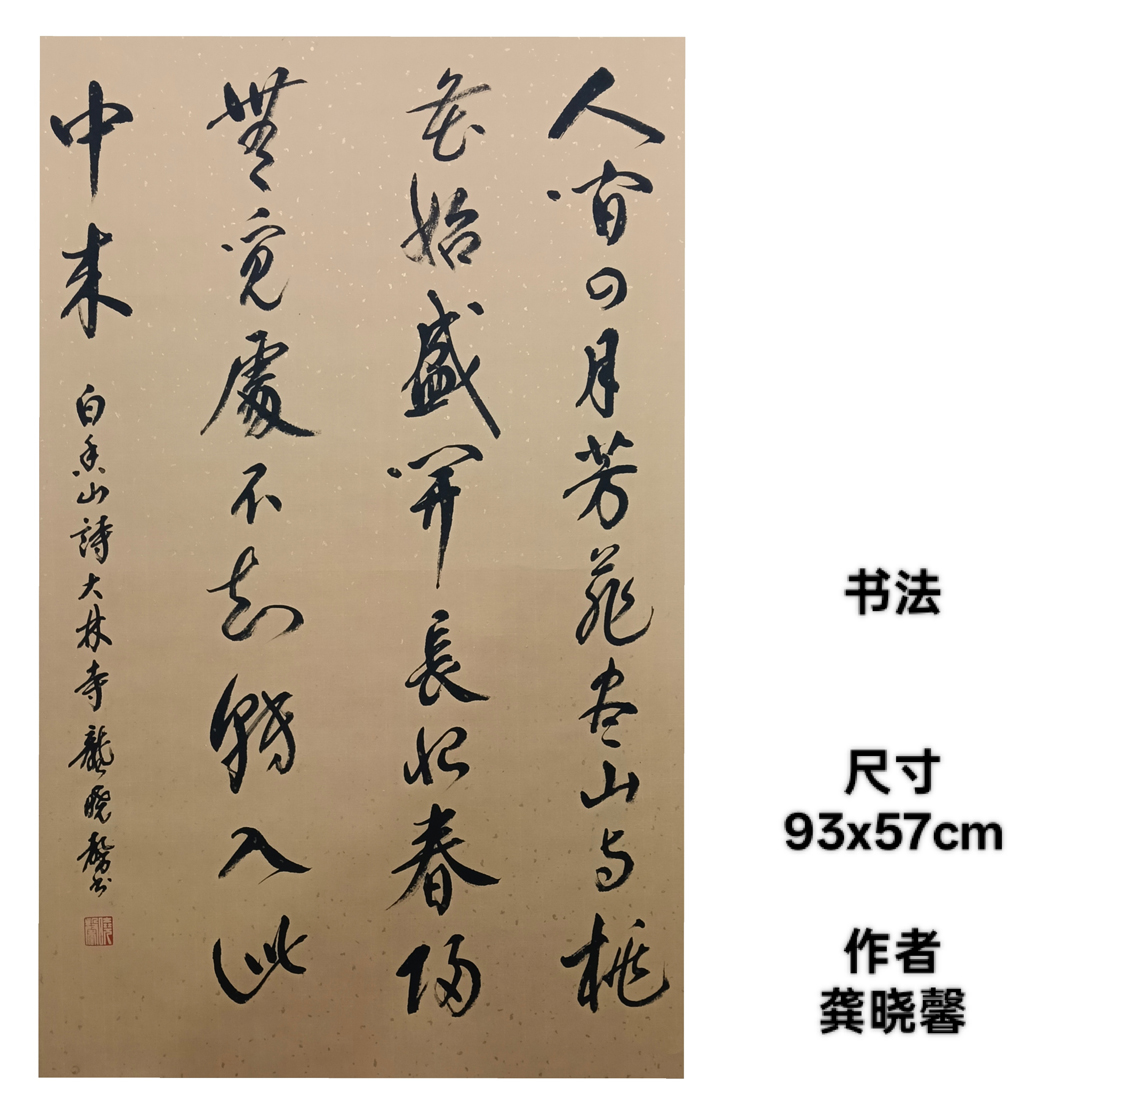 人間四月芳菲尽山寺桃
花始盛開長恨春歸
無覓處不知轉入此
中来
白香山詩大林寺龔曉馨书
书法
尺寸
93x57cm
作者
龚晓馨